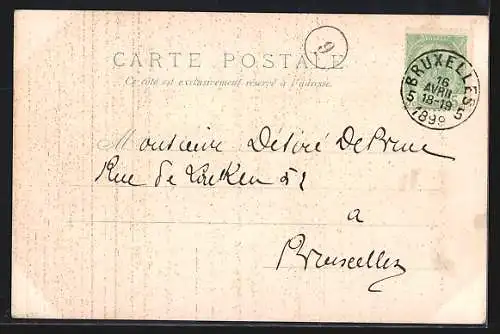 CARTE POSTALE
Ce côté est exclusivement réservé à l'adresse.
9
BRUXELLES
16
AVRIL
18-19
1899
5 5
Monsieur Désiré De
Rue de Laeken 51
a
Bruxelles